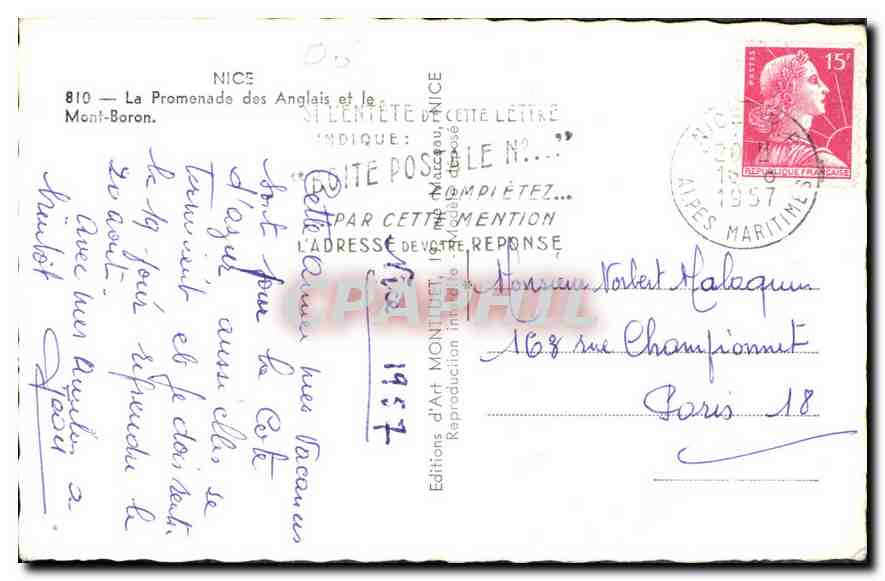 NICE
810 — La Promenade des Anglais et le
Mont-Boron.
SI L'ENTÊTE DE CETTE LETTRE
INDIQUE:
"BOITE POSTALE N°...."
COMPLÉTEZ...
PAR CETTE MENTION
L'ADRESSE DE VOTRE REPONSE
POSTES
15F
REPUBLIQUE FRANÇAISE
NICE
1957
ALPES MARITIMES
Nice 1957
Cette année mes vacances
sont pour la Côte
d'azur aussi elles se
terminent et je dois
le 19 pour reprendre le
20 août.
Avec mes Amitiés à
bientôt
Editions d'Art MONTLUET, 19, rue Marceau, NICE
Reproduction interdite - Modèle déposé
Monsieur Norbert Malaquin
168 rue Championnet
Paris 18
CPAPHIL